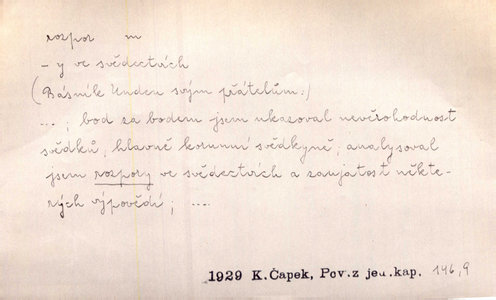 rozpor m
– y ve svědectvích
(Básník Unden svým přátelům:)
...; bod za bodem jsem ukazoval nevěrohodnost
svědků, hlavně korunní svědkyně; analysoval
jsem rozpory ve svědectvích a zaujatost někte-
rých výpovědí; ....
1929 K.Čapek, Pov.z jed.kap. 146,9